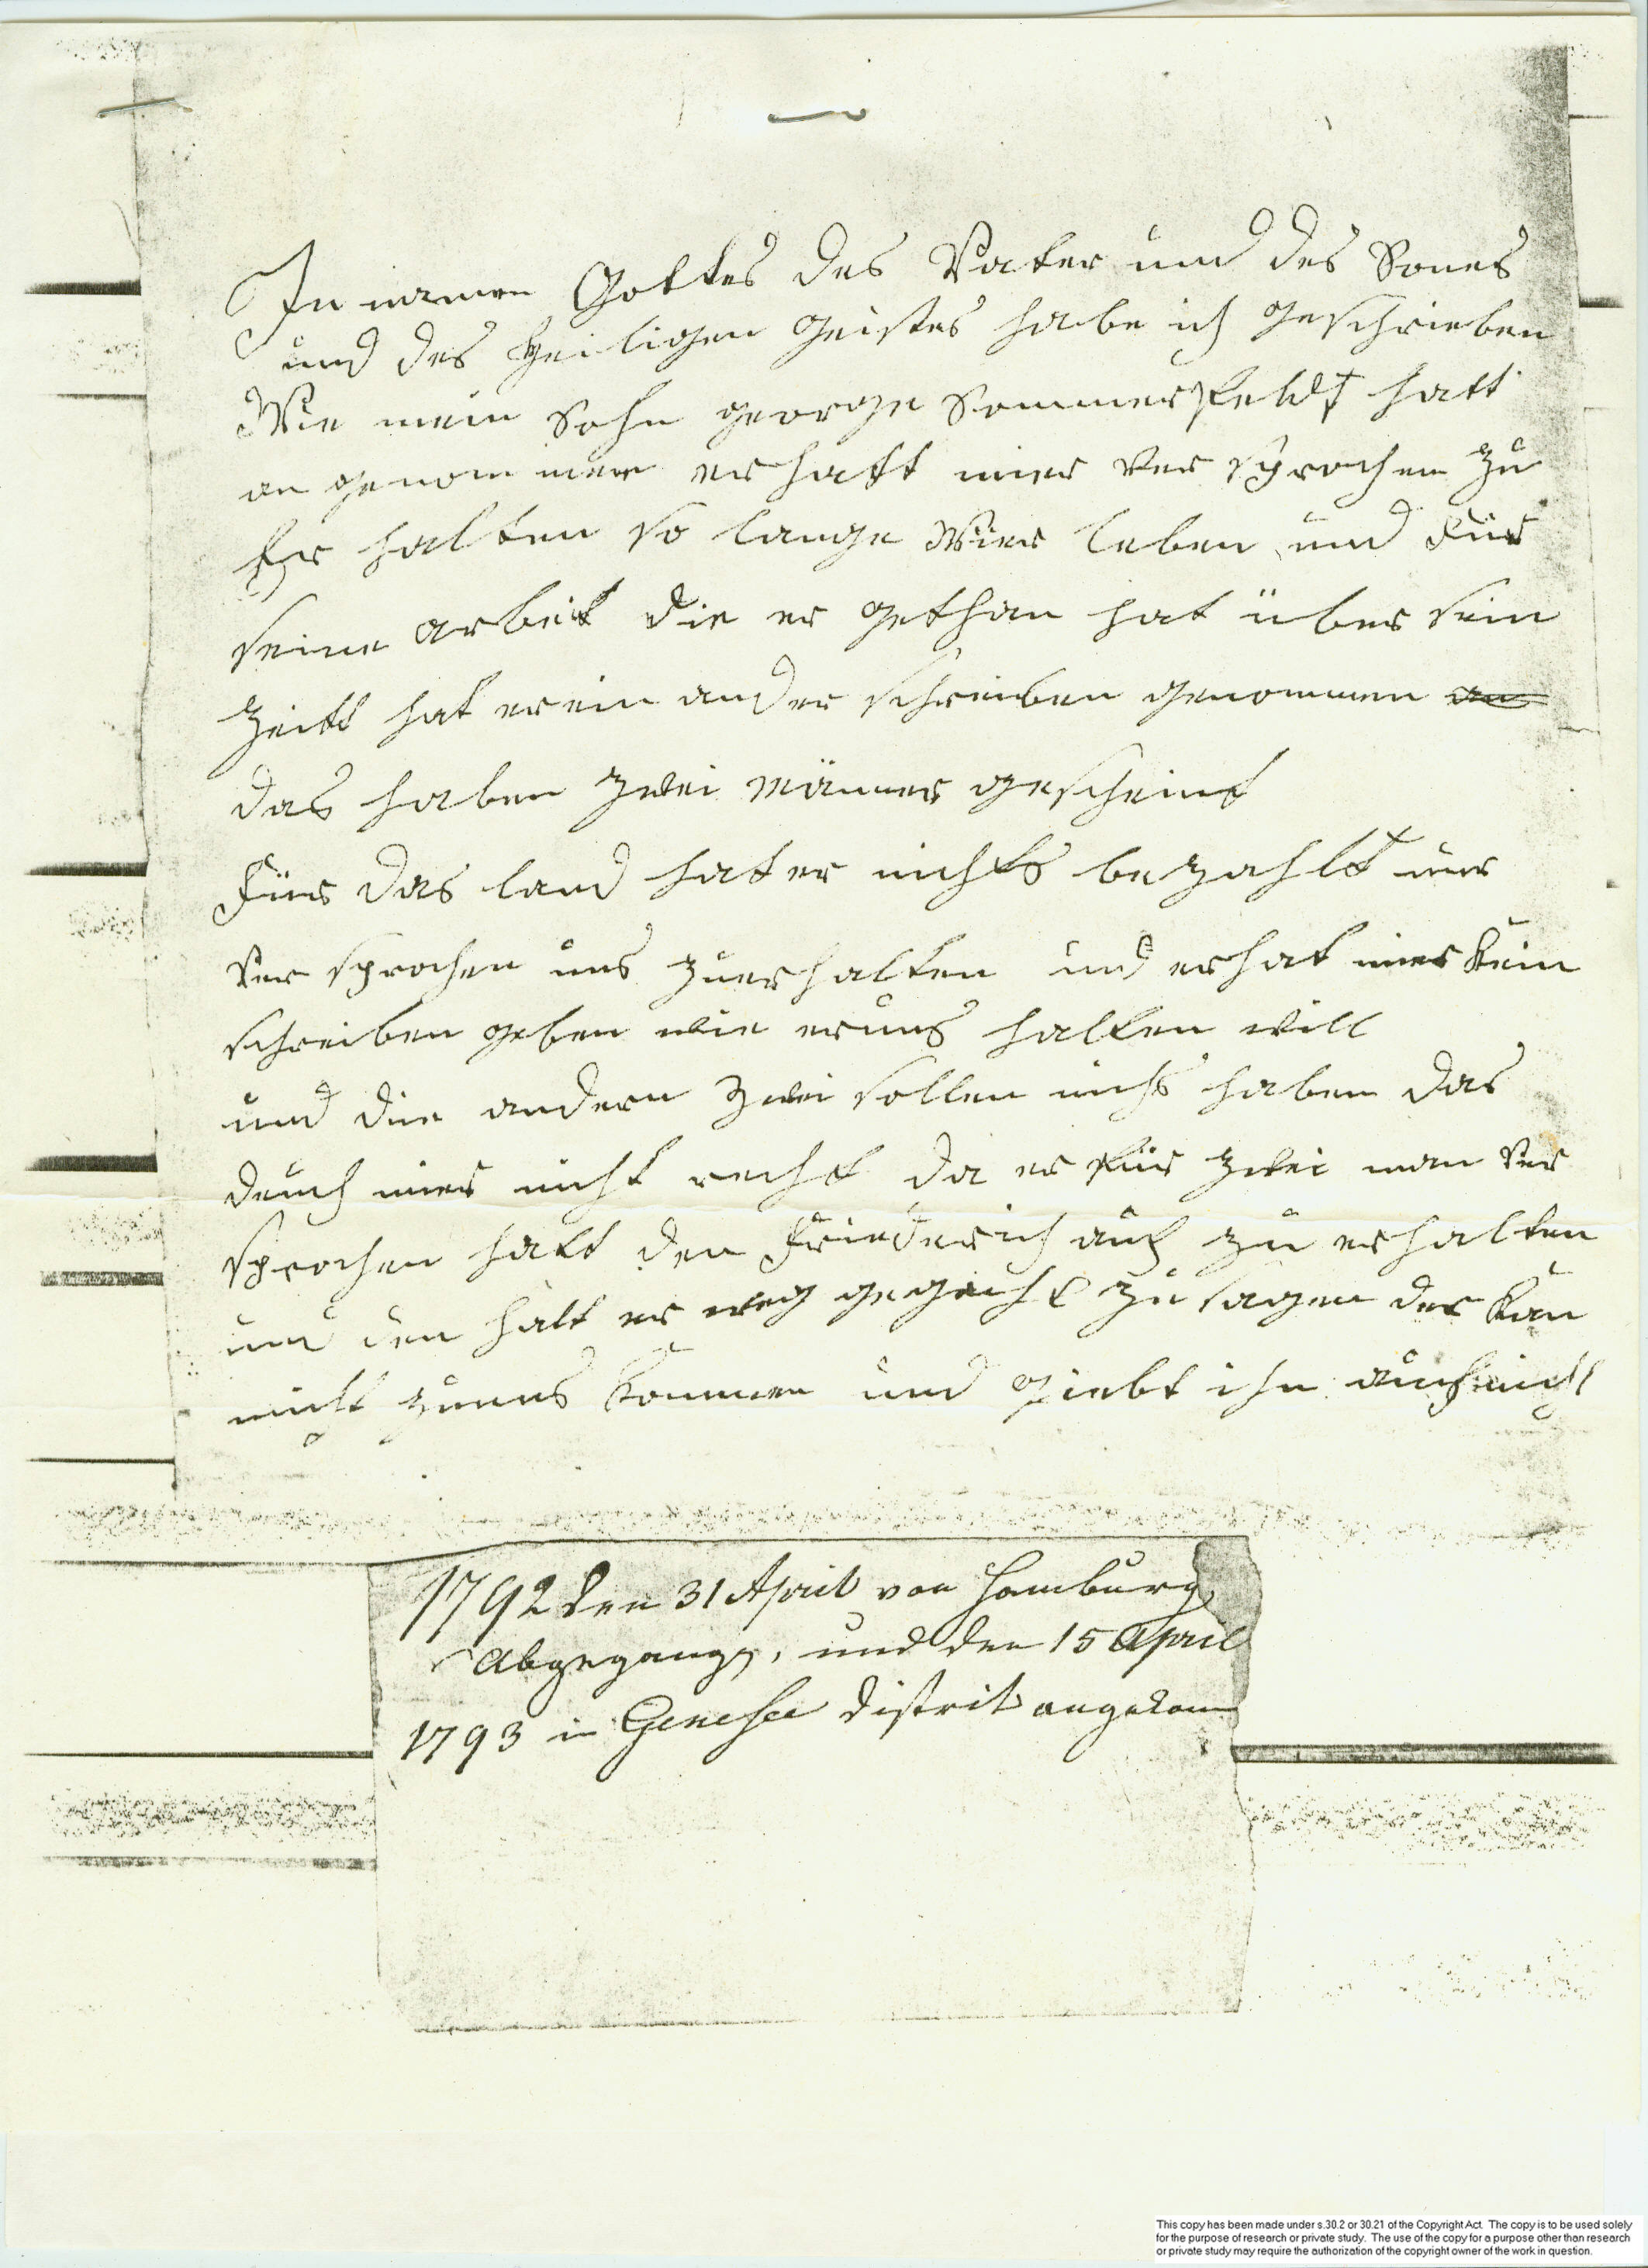 In namen Gottes des Vater und des Sones
und des Heiligen Geistes habe ich geschrieben
Wie mein Sohn george Sommerfeldt hatt
an genommen er hatt mier ver sprochen zu
Er halten so lange Wier leben und Für
seine arbeit die er gethan hat über sein
Zeitt hat er ein ander schreiben genommen
das haben zwei Männer gescheint
Für das land hat er nichts bezahlt nur
ver sprochen uns zu erhalten und er hat mier kein
schreiben geben wie er uns halten will
und die andern zwei sollen nichs haben das
deuch mier nicht recht da er für zwei man ver
sprochen hatt den Friederich auch zu erhalten
und den hatt er weg zu sagen der kan
nicht zu uns kommen und giebt ihn auch nichs
1792 den 31 April von Hamburg
Abgegangn, und den 15 April
1793 in Genesee distrikt angekom
This copy has been made under s.30.2 or 30.21 of the Copyright Act. The copy is to be used solely
for the purpose of research or private study. The use of the copy for a purpose other than research
or private study may require the authorization of the copyright owner of the work in question.